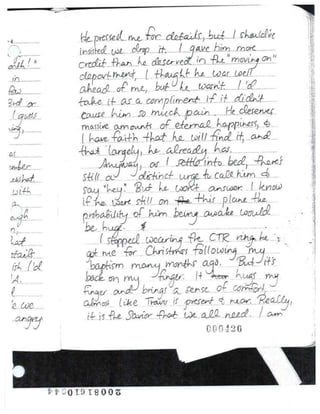 He pressed me for details, but I should've
insisted we drop it. I gave him more
credit than he deserved in the "moving on"
department, I thought he was well
ahead of me, but he wasn't. I'd
take it as a compliment if it didn't
cause him so much pain. He deserves
massive amounts of eternal happiness, &
I have faith that he will find it, and
that largely, he already has.
Anyway, as I settle into bed, there's
still a distinct urge to call him &
say "hey." But he won't answer. I know
if he were still on the this plane the
probability of him being awake would
be huge.
I stopped wearing the CTR ring he
got me for Christmas following my
baptism many months ago. But it's
back on my finger. It hugs my
finger and brings a sense of comfort,
almost like Travis is present & near. Really,
it is the Savior that we all need. I am
000426
in
few
3rd or
I guess
with
n
last
ish I'd
I
e we
angry
20081610